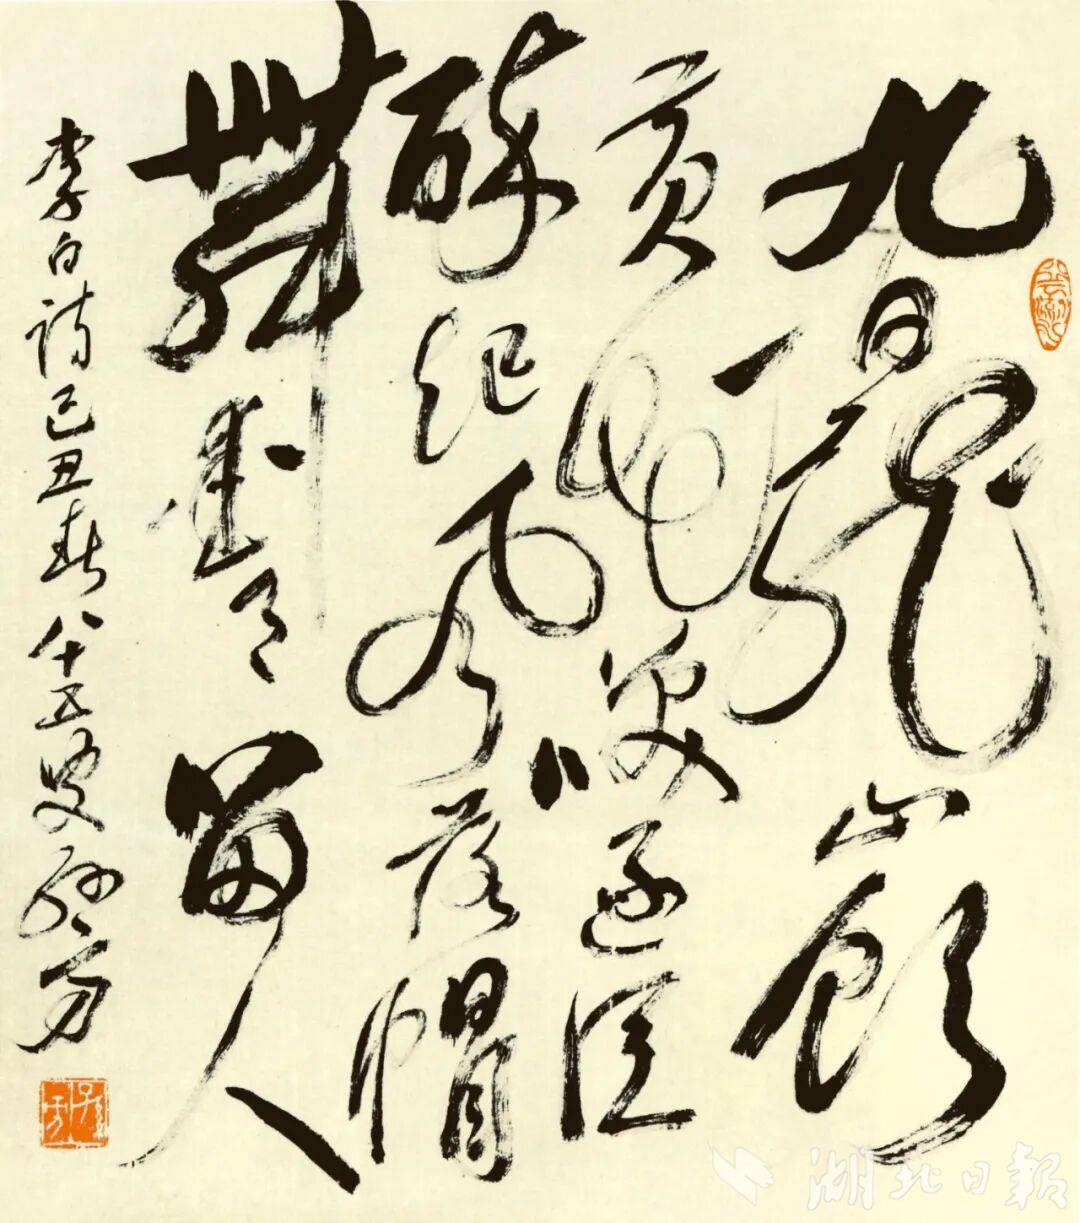 九日龍山飲
黄花咲逐臣
酔風落帽
舞愛月留人
李白詩己丑春八十五叟孙方
湖北日報